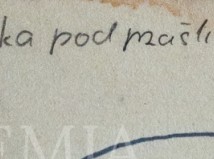 ka pod mašl
EMIA